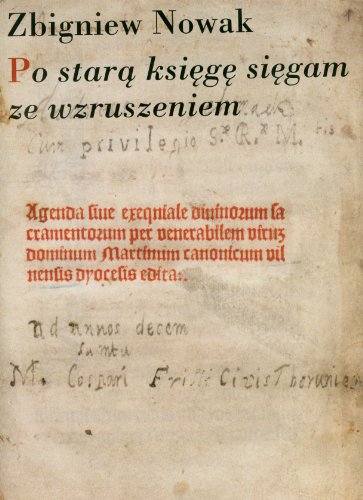 Zbigniew Nowak
Po starą księgę sięgam
ze wzruszeniem
Cum privilegio S. R. M.
Agenda siue exeqniale diuinorum sa
cramentorum per venerabilem virum
dominum Martinum canonicum vil
nensis dyocesis edita:.
ad annos decem
M. Caspari Frisii Civis Thoruniens